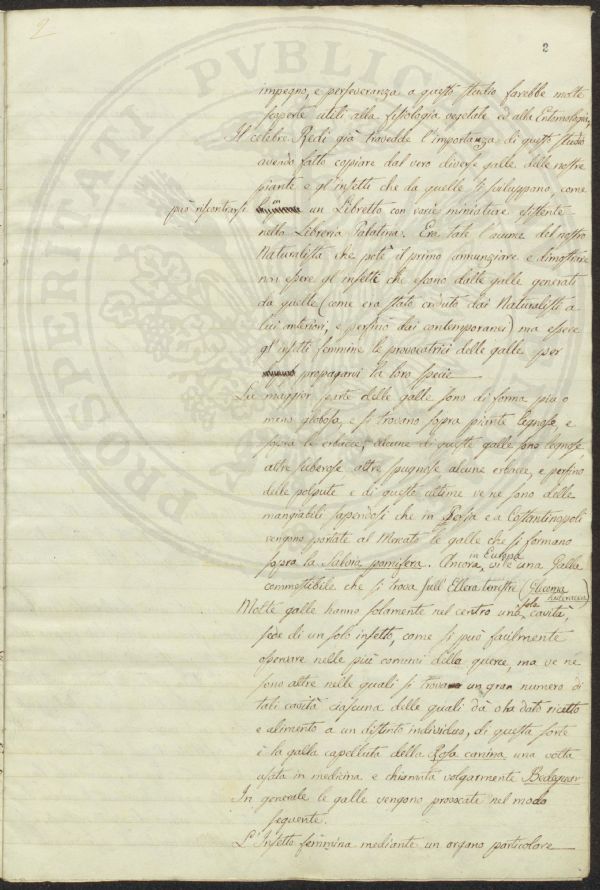 2
2
impegno, e perseveranza a questo studio farebbe molte
scoperte utili alla fisiologia vegetale ed alla Entomologia,
Il celebre Redi già travedde l'importanza di questo studio
avendo fatto copiare dal vero diverse galle delle nostre
piante e gl'insetti che da quelle si sviluppano, come
può riscontrarsi in un Libretto con varie miniature esistente
nella Libreria Palatina. Era tale l'acume del nostro
Naturalista che potè il primo annunziare e dimostrare
non essere gl'insetti che escono dalle galle generati
da quelle (come era stato creduto dai Naturalisti a
lui anteriori, e perfino dai contemporanei) ma essere
gl'insetti femmine le provocatrici delle galle per
propagarvi la loro specie
La maggior parte delle galle sono di forma più o
meno globosa, e si trovano sopra piante legnose, e
sopra le erbacee, alcune di queste galle sono legnose
altre suberose altre spugnose alcune erbacee, e perfino
delle polpute e di queste ultime ve ne sono delle
mangiabili sapendosi che in Persia e a Costantinopoli
vengono portate al Mercato le galle che si formano
sopra la Salvia pomifera. Ancora in Europa vi è una Galla
commestibile che si trova sull'Ellera terrestre (Glecoma hederacea)
Molte galle hanno solamente nel centro una sola cavità,
sede di un solo insetto, come si può facilmente
osservare nelle più comuni della querce, ma ve ne
sono altre nelle quali si trova un gran numero di
tali cavità ciascuna delle quali dà o ha dato ricetto
e alimento a un distinto individuo, di questa sorte
è la galla capelluta della Rosa canina una volta
usata in medicina e chiamata volgarmente Bedeguar
In generale le galle vengono provocate nel modo
seguente.
L'Insetto femmina mediante un organo particolare
PROSPERITATI PVBLICAE